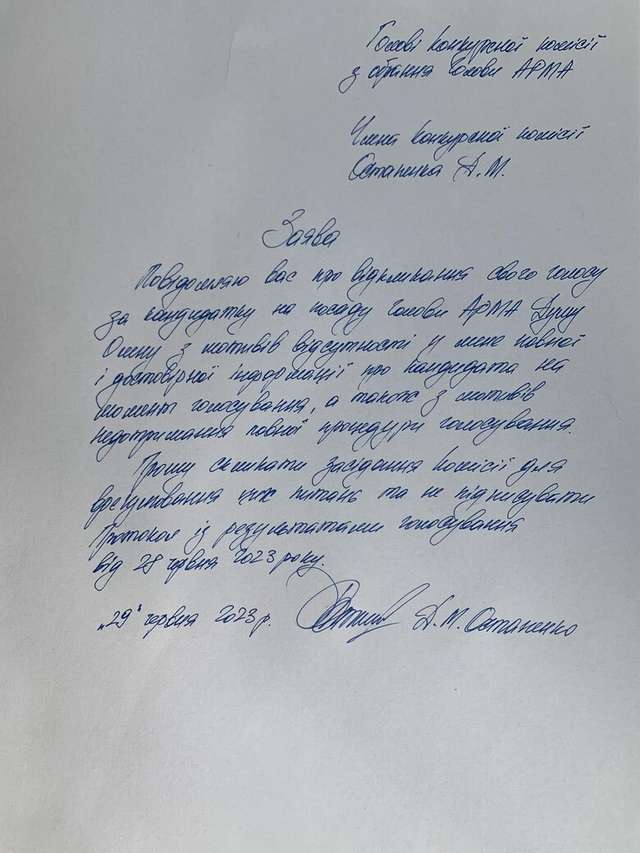 Голові конкурсної комісії
з обрання Голови АРМА
Члена конкурсної комісії
Остапенка Д.М.
Заява
Повідомляю вас про відкликання свого голосу
за кандидатку на посаду Голови АРМА Думу
Олену з мотивів відсутності у мене повної
і достовірної інформації про кандидата на
момент голосування, а також з мотивів
недотримання повної процедури голосування.
Прошу скликати засідання комісії для
врегулювання цих питань та не підписувати
Протокол із результатами голосування
від 28 червня 2023 року.
„29" червня 2023 р. Д.М. Остапенко